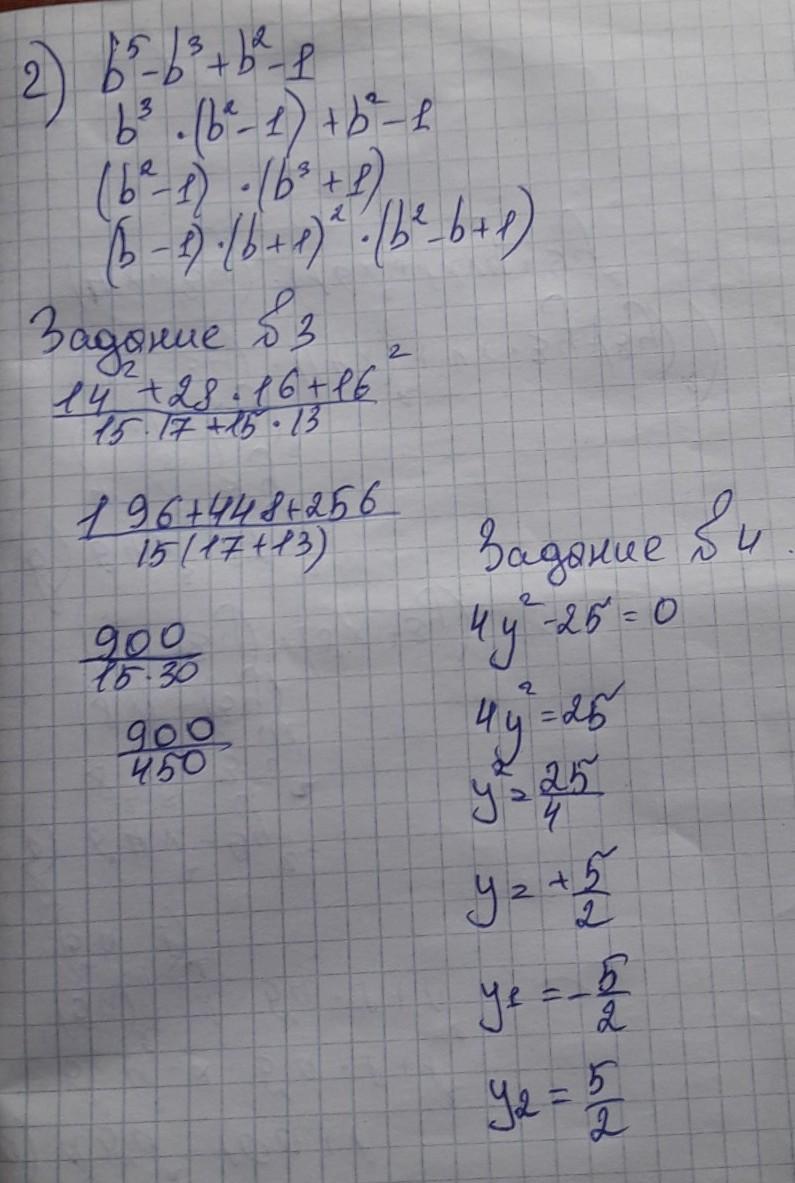 2) b⁵-b³+b²-1
b³·(b²-1)+b²-1
(b²-1)·(b³+1)
(b-1)·(b+1)²·(b²-b+1)
Задание №3
14²+28·16+16²
15·17+15·13
196+448+256
15(17+13)
900
15·30
900
450
Задание №4.
4y²-25=0
4y²=25
y²=25/4
y=+5/2
y1=-5/2
y2=5/2